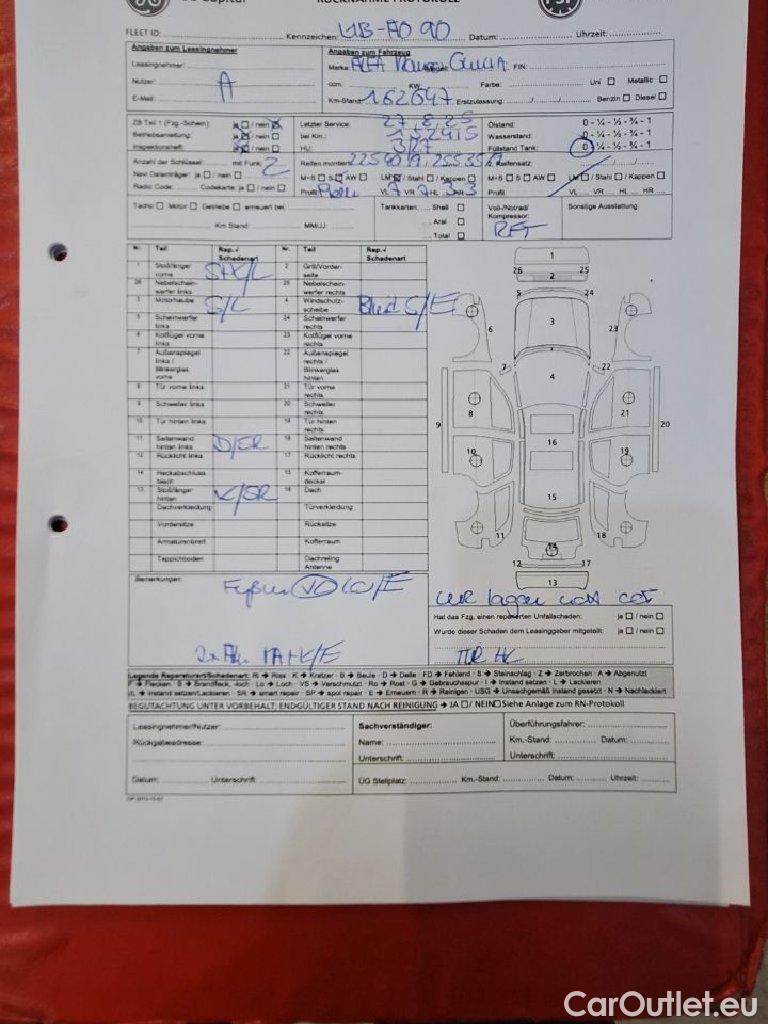 RÜCKNAHME-PROTOKOLL
FLEET ID: Kennzeichen: Datum: Uhrzeit:
Angaben zum Leasingnehmer Angaben zum Fahrzeug
Leasingnehmer: Marke: ALFA FIN:
Nutzer: A ccm: KW: Farbe: Uni Metallic
E-Mail: Km-Stand: 162647 Erstzulassung: / / Benzin Diesel
ZB Teil 1 (Fzg.-Schein): ja / nein Letzter Service: 27.8.25 Ölstand: 0 - ¼ - ½ - ¾ - 1
Betriebsanleitung: ja / nein bei Km.: Wasserstand: 0 - ¼ - ½ - ¾ - 1
Inspektionsheft: ja / nein HU: 3/27 Füllstand Tank: 0 - ¼ - ½ - ¾ - 1
Anzahl der Schlüssel: mit Funk: 2 Reifen montiert: 2. Reifensatz:
Navi Datenträger: ja / nein M+S S AW LM / Stahl / Kappen M+S S AW LM / Stahl / Kappen
Radio Code: Codekarte: ja / nein Profil VL 7 VR 7 HL 3 HR 3 Profil VL VR HL HR
Tacho Motor Getriebe erneuert bei: Tankkarten: Shell Voll-/Notrad/ Sonstige Ausstattung:
Km Stand: MM/JJ: Aral Kompressor:
Total RFT
Nr. Teil Rep.-/ Schadenart Nr. Teil Rep.-/ Schadenart
1 Stoßfänger vorne 2 Grill/Vorderseite
26 Nebelscheinwerfer links 25 Nebelscheinwerfer rechts
3 Motorhaube S/L 4 Windschutzscheibe S/E
5 Scheinwerfer links 24 Scheinwerfer rechts
6 Kotflügel vorne links 23 Kotflügel vorne rechts
7 Außenspiegel links / Blinkerglas vorne 22 Außenspiegel rechts / Blinkerglas hinten
8 Tür vorne links 21 Tür vorne rechts
9 Schweller links 20 Schweller rechts
10 Tür hinten links 19 Tür hinten rechts
11 Seitenwand hinten links D/SR 18 Seitenwand hinten rechts
12 Rücklicht links 17 Rücklicht rechts
14 Heckabschlussblech 15 Kofferraumdeckel
13 Stoßfänger hinten K/SR 16 Dach
Dachverkleidung Türverkleidung
Vordersitze Rücksitze
Armaturenbrett Kofferraum
Teppichboden Dachreling Antenne
1
26 25
2
5 24
6 3 23
7 22
4
8 21
9 20
16
10 19
15
11 18
14
12 17
13
Bemerkungen:
Hat das Fzg. einen reparierten Unfallschaden: ja / nein
Wurde dieser Schaden dem Leasinggeber mitgeteilt: ja / nein
Legende Reparaturart/Schadenart: Ri → Riss · K → Kratzer · B → Beule · D → Delle · FD → Fehlend · S → Steinschlag · Z → Zerbrochen · A → Abgenutzt
F → Flecken · B → Brandfleck, -loch · Lo → Loch · VS → Verschmutzt · Ro → Rost · G → Gebrauchsspur · I → Instand setzen · L → Lackieren
I/L → Instand setzen/Lackieren · SR → smart repair · SP → spot repair · E → Erneuern · R → Reinigen · USG → Unsachgemäß instand gesetzt · N → Nachlackiert
BEGUTACHTUNG UNTER VORBEHALT; ENDGÜLTIGER STAND NACH REINIGUNG → JA / NEIN Siehe Anlage zum RN-Protokoll
Leasingnehmer/Nutzer: Sachverständiger: Überführungsfahrer:
Rückgabeadresse: Name: Km.-Stand: Datum:
Unterschrift: Unterschrift:
Datum: Unterschrift: ÜG Stellplatz: Km.-Stand: Datum: Uhrzeit:
CarOutlet.eu